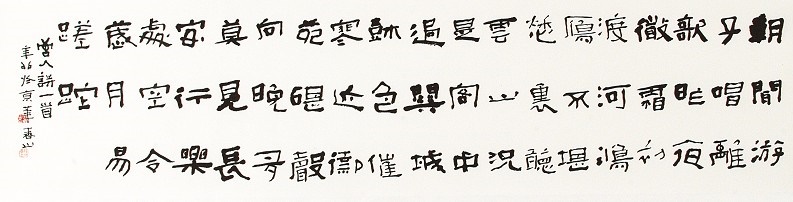 朝聞游
子唱離
歌昨夜
微霜初
渡河鴻
鴈不堪
愁裏聽
雲山況
是客中
過關城
色催
寒近御
苑砧聲
向晚多
莫見長
安行樂
處空令
歲月易
蹉跎
唐人詩一首